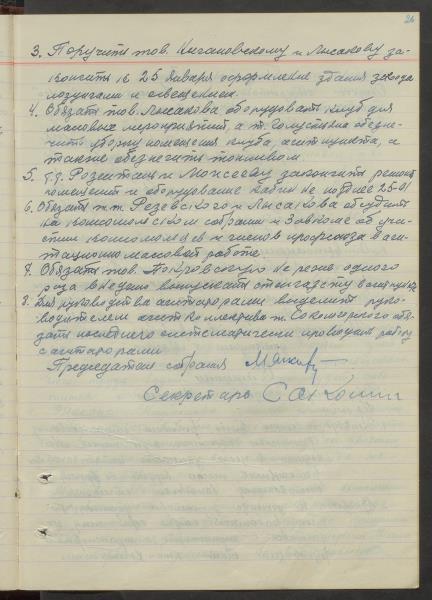 26
3. Поручить тов. Кигановскому и Лысакову за-
кончить к 25 января оформление здания завода
лозунгами и освещением.
4. Обязать тов. Лысакова оборудовать клуб для
массовых мероприятий, а т. Голустьяна обеспе-
чить уборку помещения клуба, агитпункта, а
также обеспечить топливом.
5. т.т. Розентали и Моисееву закончить ремонт
помещения и оборудование кабин не позднее 25-01
6. Обязать т.т. Резевского и Лысакова обсудить
на комсомольском собрании и Завкоме об уча-
стии комсомольцев и членов профсоюза в аги-
тационно массовой работе.
7. Обязать тов. Покровскую не реже одного
раза в неделю выпускать стенгазету
8. Для руководства агитаторами выделить руко-
водителем агитколлектива т. Сокомирского обя-
зать последнего систематически проводить работу
с агитаторами
Председатель собрания
Секретарь